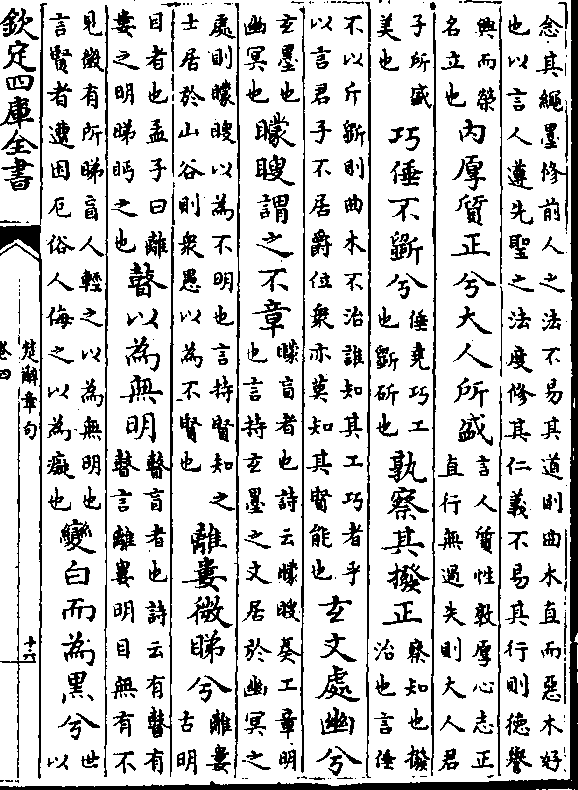 念其繩墨修前人之法不易其道則曲木直而惡木好
也以言人遵先聖之法度修其仁義不易其行則德譽
興而榮
名立也
内厚質正兮大人所盛
言人質性敦厚心志正
直行無過失則大人君
子所盛
美也
巧倕不斲兮
倕堯巧工
也斲斫也
孰察其撥正
察知也撥
治也言倕
不以斤斲則曲木不治誰知其工巧者乎
以言君子不居爵位衆亦莫知其賢能也
玄文處幽兮
玄墨也
幽冥也
矇瞍謂之不章
矇盲者也詩云矇瞍奏工章明
也言持玄墨之文居於幽冥之
處則矇瞍以為不明也言持賢知之
士居於山谷則衆愚以為不賢也
離婁微睇兮
離婁
古明
目者也孟子曰離
婁之明睇眄之也
瞽以為無明
瞽盲者也詩云有瞽有
瞽言離婁明目無有不
見微有所睇盲人輕之以為無明也
言賢者遭困厄俗人侮之以為癡也
變白而為黑兮
世
以
欽定四庫全書
楚辭章句
卷四
十六